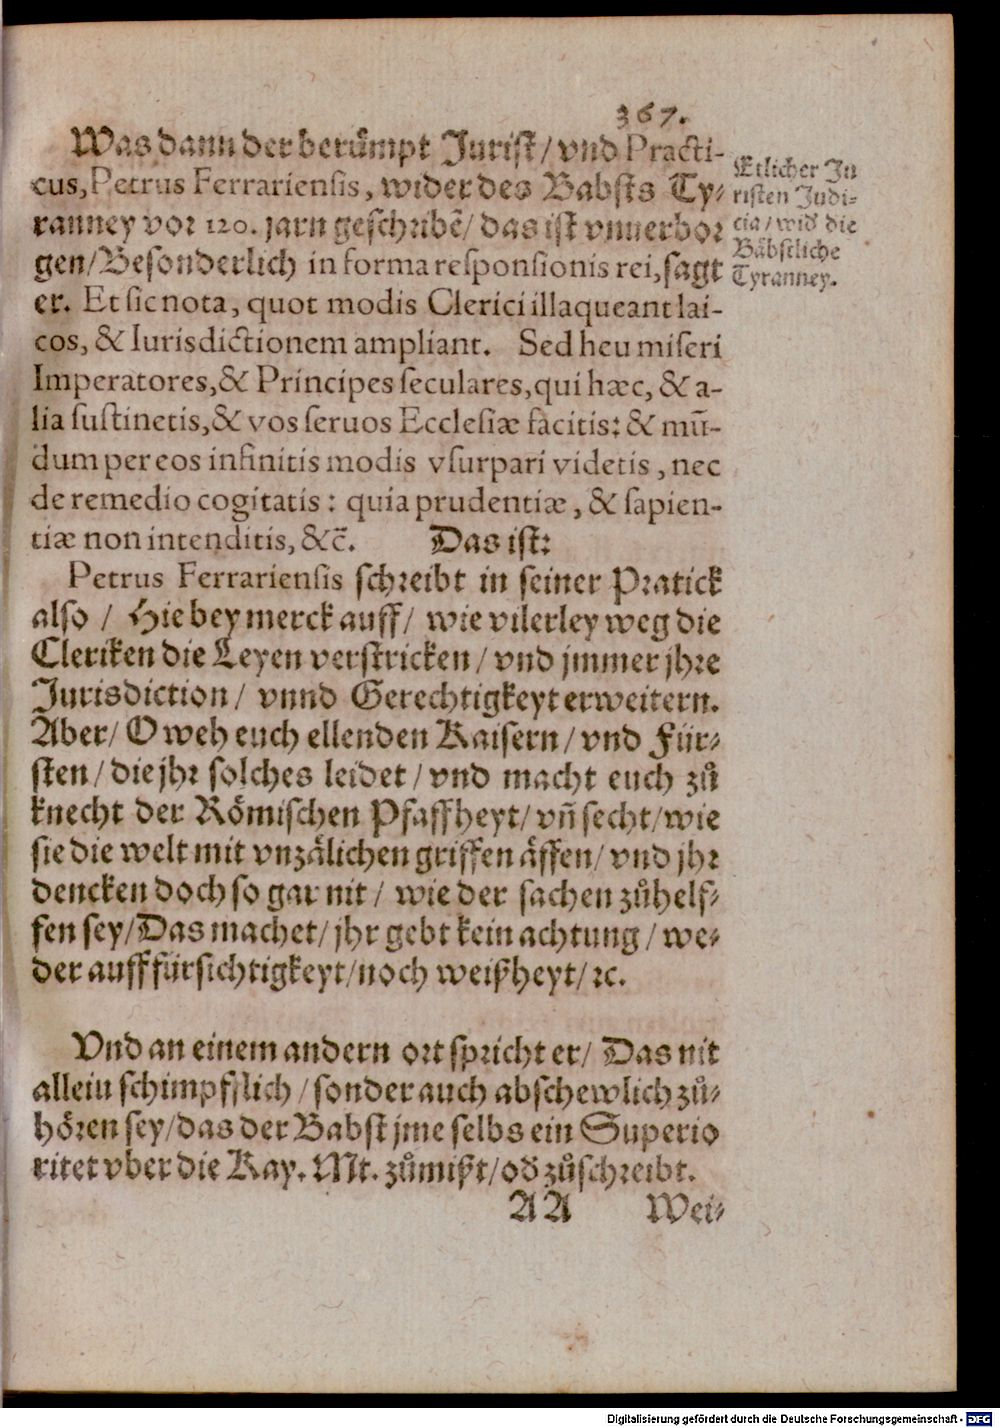 367.
Was dann der berům̃pt Jurist/ vnd Practi-
cus, Petrus Ferrariensis, wider des Babsts Ty-
ranney vor 120. jarn geschribē/ das ist vnuerbor
gen/Besonderlich in forma responsionis rei, sagt
er. Et sic nota, quot modis Clerici illaqueant lai-
cos, & Iurisdictionem ampliant. Sed heu miseri
Imperatores,& Principes seculares,qui hæc, & a-
lia sustinetis,& vos seruos Ecclesiæ facitis: & mũ-
dum per eos infinitis modis vsurpari videtis, nec
de remedio cogitatis: quia prudentiæ, & sapien-
tiæ non intenditis, &c̃. Das ist:
Petrus Ferrariensis schreibt in seiner Pratick
also / Hie bey merck auff/ wie vilerley weg die
Cleriken die Leyen verstricken/ vnd jmmer jhre
Jurisdiction/ vnnd Gerechtigkeyt erweitern.
Aber/ O weh euch ellenden Kaisern/ vnd Für-
sten/ die jhr solches leidet/ vnd macht euch zů
knecht der Römischen Pfaffheyt/ vñ secht/ wie
sie die welt mit vnzälichen griffen äffen/ vnd jhr
dencken doch so gar nit/ wie der sachen zůhelf-
fen sey/Das machet/ jhr gebt kein achtung/ we-
der auff fürsichtigkeyt/noch weißheyt/ ꝛc.
Vnd an einem andern ort spricht er/ Das nit
allein schimpfflich/ sonder auch abschewlich zů-
hören sey/das der Babst jme selbs ein Superio
ritet vber die Kay. Mt. zůmißt/ od̕ zůschreibt.
AA Wei-
Etlicher Ju
risten Judi-
cia/ wid̕ die
Bäbstliche
Tyranney.
Digitalisierung gefördert durch die Deutsche Forschungsgemeinschaft - DFG